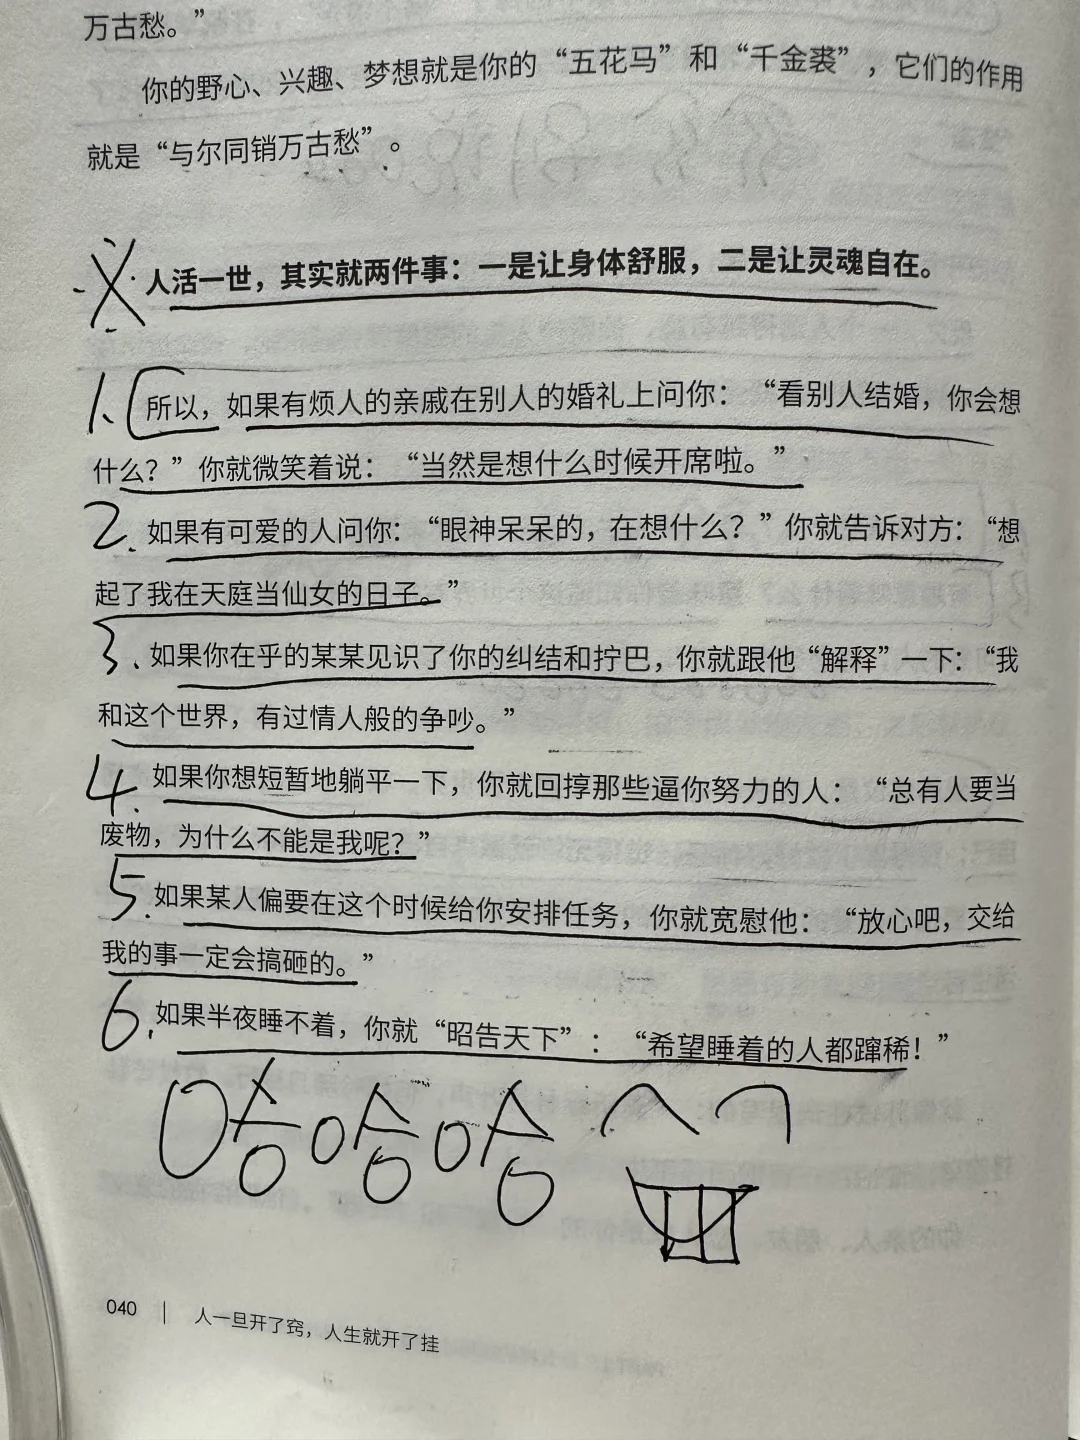 万古愁。”
你的野心、兴趣、梦想就是你的“五花马”和“千金裘”，它们的作用
就是“与尔同销万古愁”。
人活一世，其实就两件事：一是让身体舒服，二是让灵魂自在。
1、所以，如果有烦人的亲戚在别人的婚礼上问你：“看别人结婚，你会想
什么？”你就微笑着说：“当然是想什么时候开席啦。”
2、如果有可爱的人问你：“眼神呆呆的，在想什么？”你就告诉对方：“想
起了我在天庭当仙女的日子。”
3、如果你在乎的某某见识了你的纠结和拧巴，你就跟他“解释”一下：“我
和这个世界，有过情人般的争吵。”
4、如果你想短暂地躺平一下，你就回撑那些逼你努力的人：“总有人要当
废物，为什么不能是我呢？”
5、如果某人偏要在这个时候给你安排任务，你就宽慰他：“放心吧，交给
我的事一定会搞砸的。”
6、如果半夜睡不着，你就“昭告天下”：“希望睡着的人都蹿稀！”
哈哈哈
040 | 人一旦开了窍，人生就开了挂